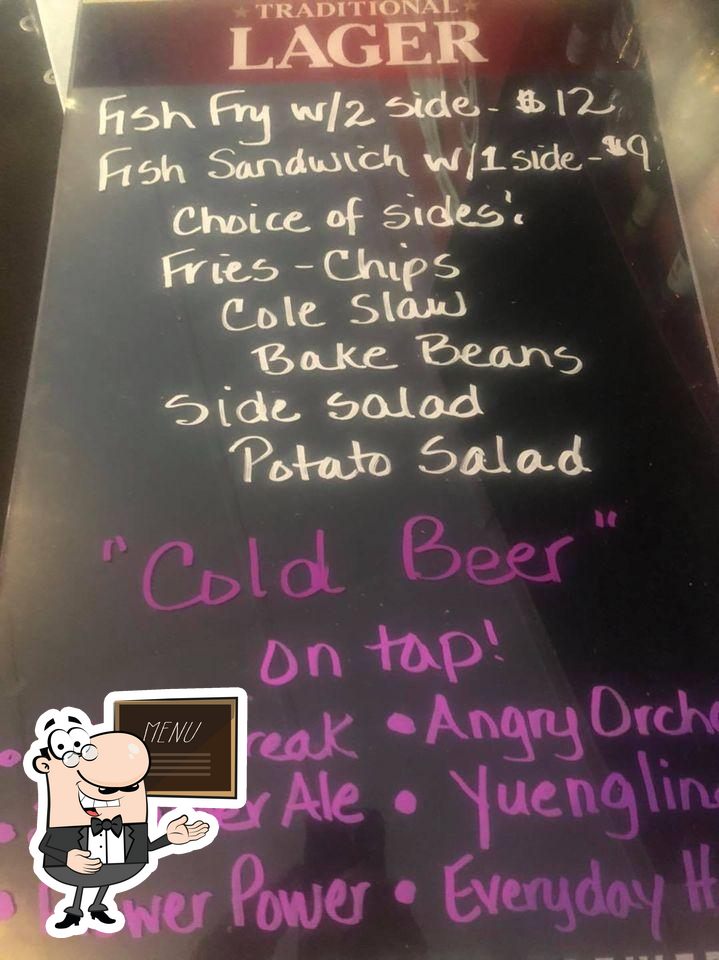 TRADITIONAL
LAGER
Fish Fry w/2 side - $12
Fish Sandwich w/1 side - $9
Choice of sides:
Fries - Chips
Cole Slaw
Bake Beans
Side salad
Potato Salad
"Cold Beer"
on tap!
• Angry
MENU
Ale • Yuengling
Power • Everyday